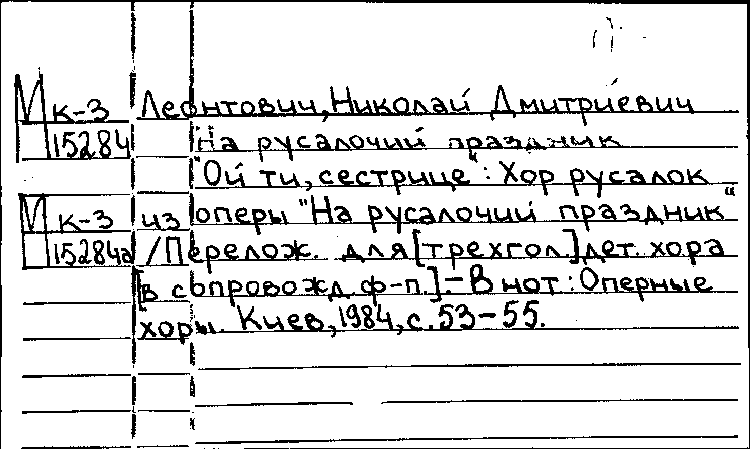 М к-3 Леонтович, Николай Дмитриевич
П 15284 На русалочий праздник
"Ой ти, сестрице": Хор русалок
М к-3 из оперы "На русалочий праздник"
П 15284а /Перелож. для [трехгол.] дет. хора
[в сопровожд. ф-п.].- В нот: Оперные
хоры. Киев, 1984, с. 53-55.